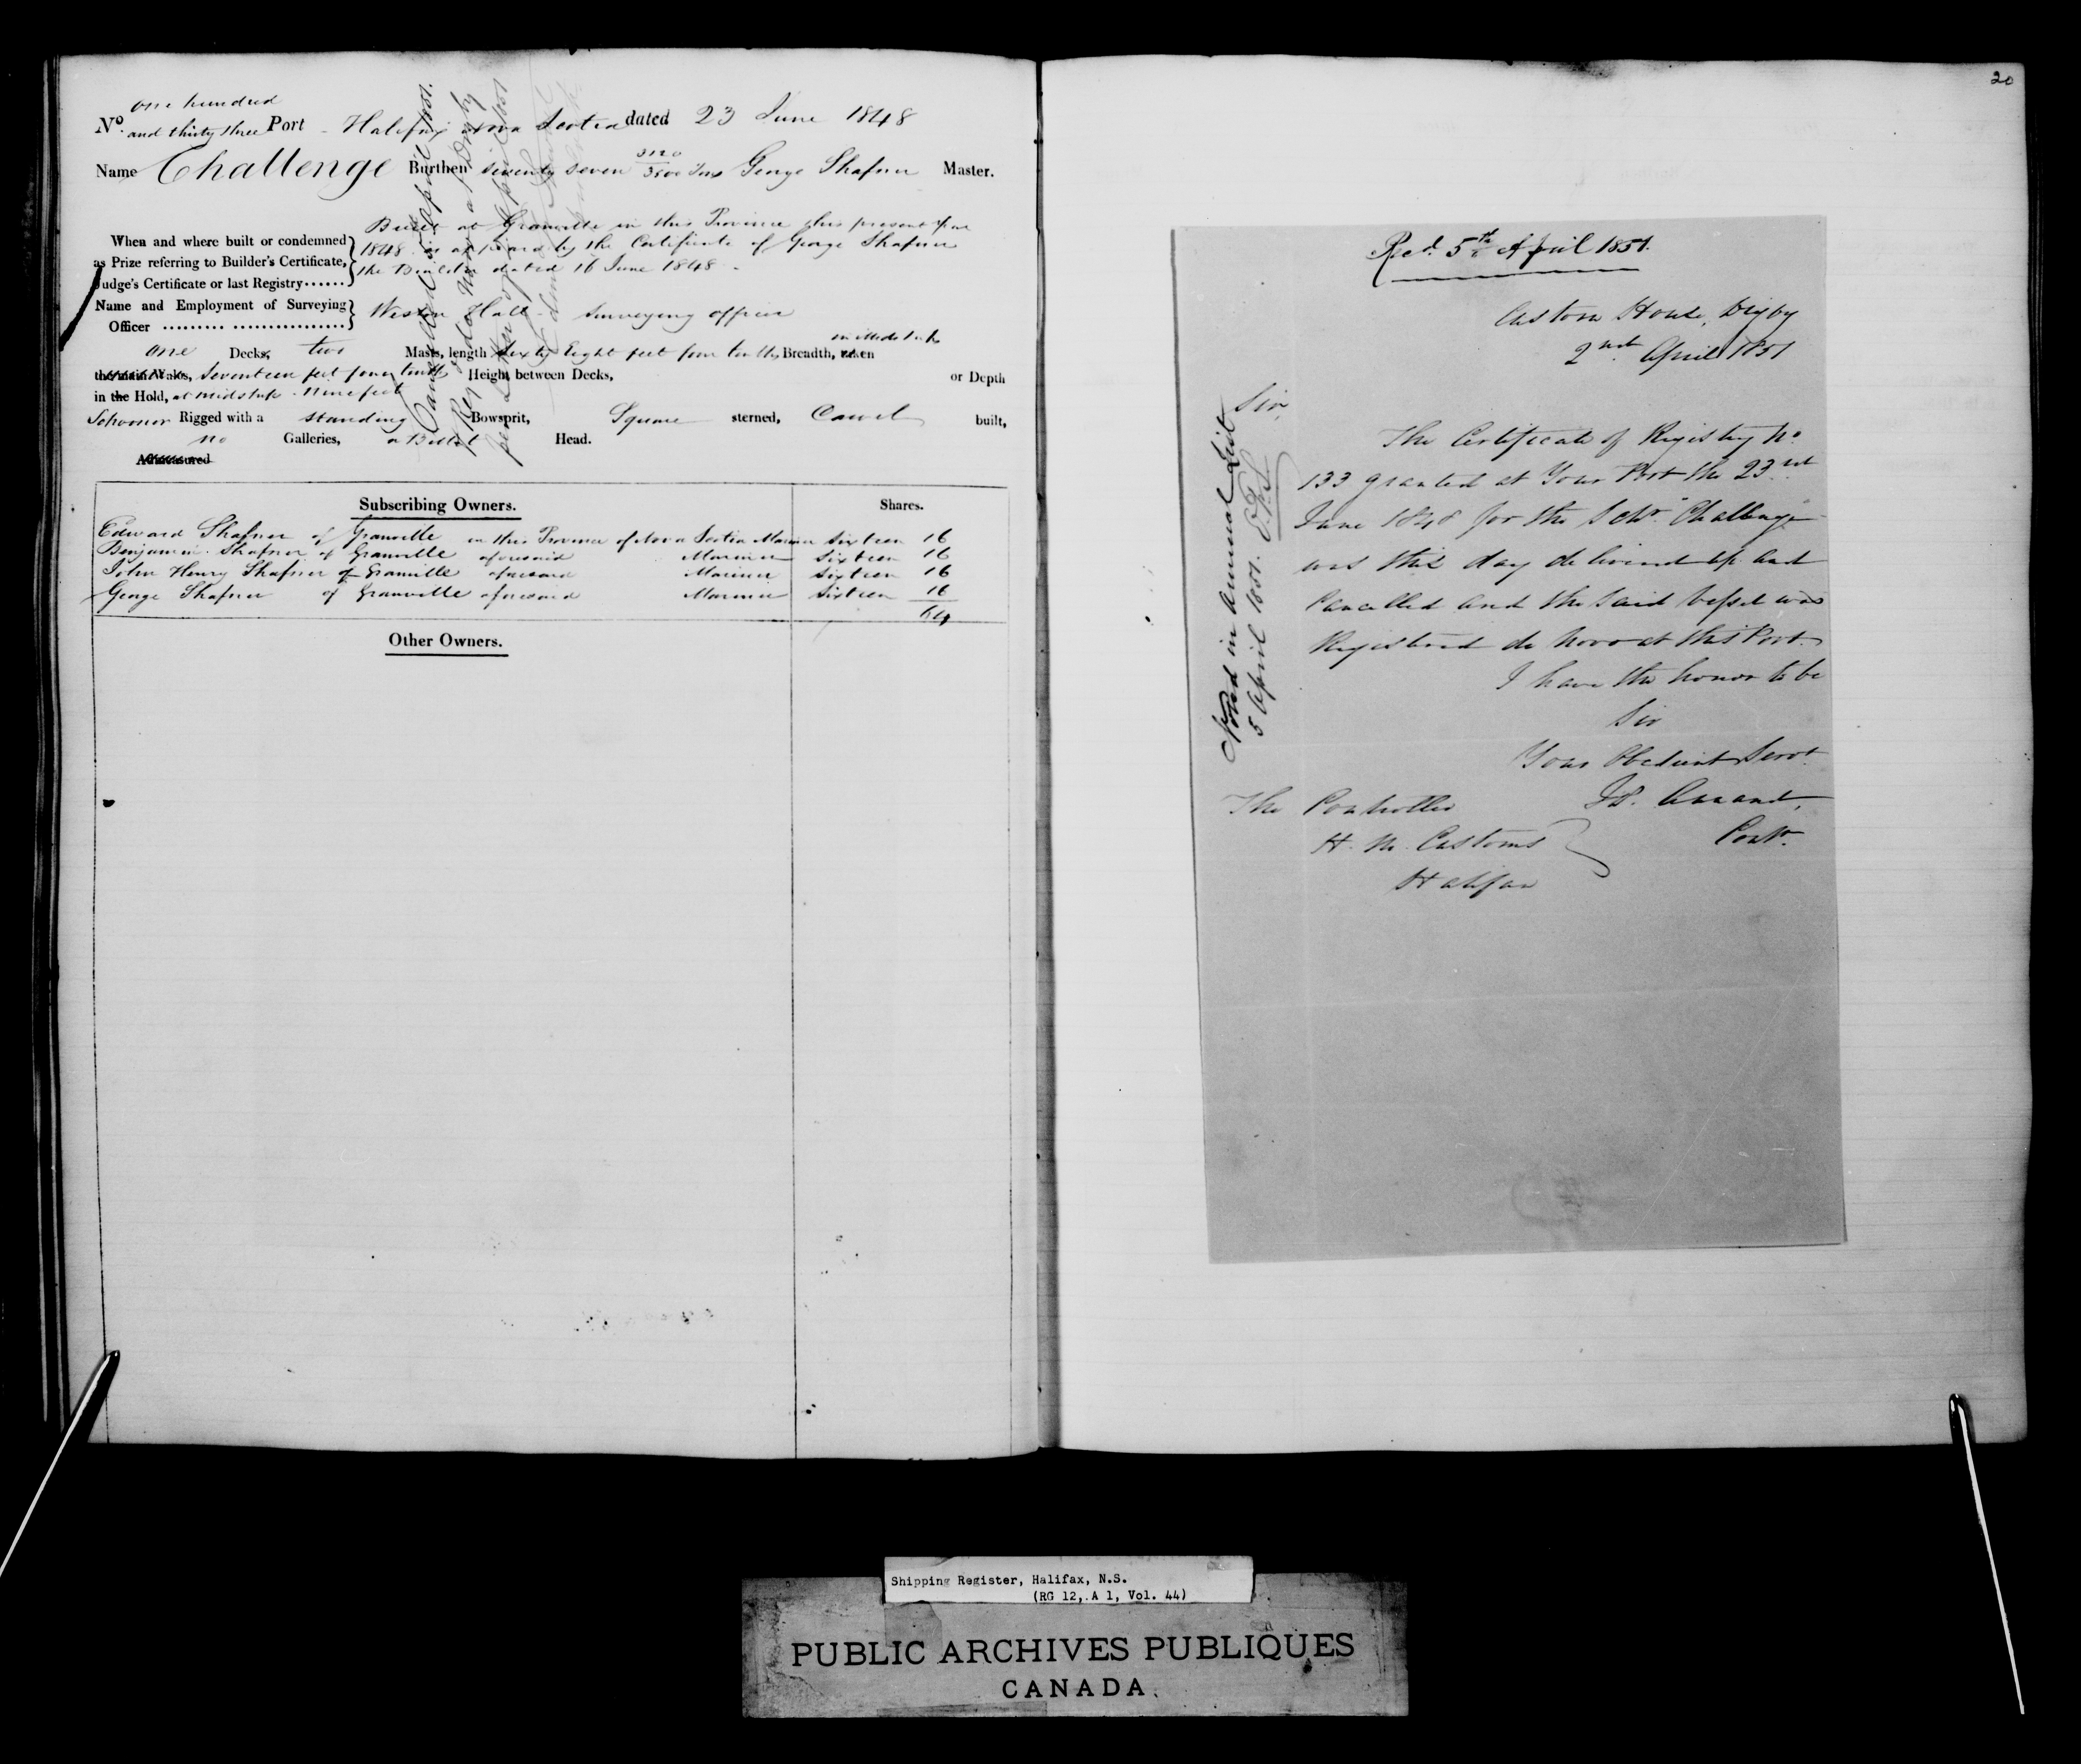 one hundred
No. and thirty three Port Halifax Nova Scotia dated 23 June 1848
Name Challenge Burthen seventy seven Tons George Shafner Master.
Built at Granville in this Province this present year
When and where built or condemned
1848 as appears by the Certificate of George Shafner
as Prize referring to Builder's Certificate,
the Builder dated 16 June 1848.
Judge's Certificate or last Registry......
Name and Employment of Surveying
Officer
Weston Hall Surveying officer
in Midships
one Decks, two Masts, length sixty Eight feet four tenths Breadth, taken
the main Wales, seventeen feet four tenths Height between Decks, or Depth
in the Hold, at midships nine feet
Schooner Rigged with a standing Bowsprit, Square sterned, Carvel built,
no Galleries, a Billet Head.
Admeasured
Cancelled April 1851.
Reg de Novo at Digby
Subscribing Owners. Shares.
Edward Shafner of Granville in this Province of Nova Scotia Mariner Sixteen 16
Benjamin Shafner of Granville aforesaid Mariner Sixteen 16
John Henry Shafner of Granville aforesaid Mariner Sixteen 16
George Shafner of Granville aforesaid Mariner Sixteen 16
64
Other Owners.
20
Recd. 5th April 1851.
Custom House, Digby
2nd April 1851
Sir,
The Certificate of Registry No
133 granted at Your Port the 23rd
June 1848 for the Schr. Challenge
was this day delivered up and
Cancelled and the said Vessel was
Registered de novo at this Port.
I have the honor to be
Sir
Your Obedient Servt.
Contr.
The Controller
H. M. Customs
Halifax
Noted in Annual List
5 April 1851.
Shipping Register, Halifax, N.S.
(RG 12, A 1, Vol. 44)
PUBLIC ARCHIVES PUBLIQUES
CANADA